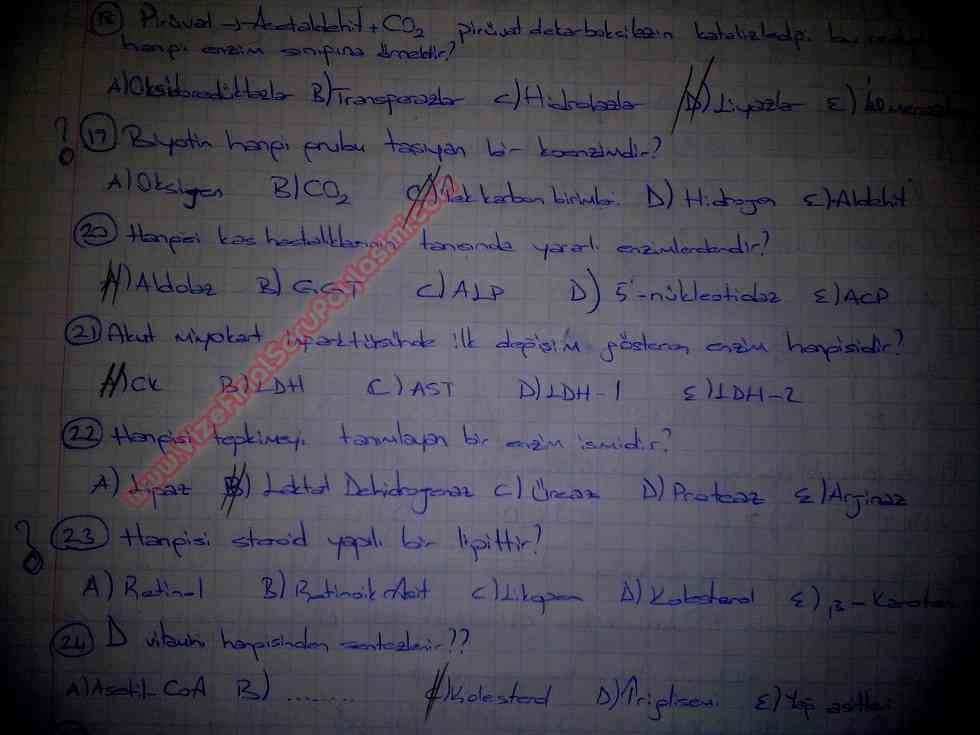 18 Pirüvat → Asetaldehit + CO2 pirüvat dekarboksilazın katalizlediği bu
hangi enzim sınıfına örnektir?
A) Oksidoredüktazlar B) Transferazlar C) Hidrolazlar D) Liyazlar E)
? 19 Biyotin hangi grubu taşıyan bir koenzimdir?
A) Oksijen B) CO2 C) Tek karbon birimler. D) Hidrojen E) Aldehit
20 Hangisi kas hastalıklarının tanısında yararlı enzimlerdendir?
A) Aldolaz B) GGT C) ALP D) 5'-nükleotidaz E) ACP
21 Akut miyokart infarktüsünde ilk değişim gösteren enzim hangisidir?
A) CK B) LDH C) AST D) LDH-1 E) LDH-2
22 Hangisi tepkimeyi tanımlayan bir enzim ismidir?
A) Lipaz B) Laktat Dehidrogenaz C) Üreaz D) Proteaz E) Arjinaz
? 23 Hangisi steroid yapılı bir lipittir?
A) Retinol B) Retinoik Asit C) Likopen D) Kolesterol E) β-Karoten
24 D vitamini hangisinden sentezlenir??
A) Asetil-CoA B) ........ C) Kolesterol D) Trigliserit E) Yağ asitleri
www.VizeFinalSoruPaylasimi.com